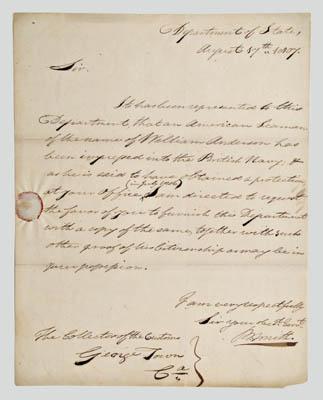 Department of State,
August 17th 1807.
Sir.
It has been represented to this
Department, that an American Seaman
of the name of William Anderson has
been impressed into the British Navy, &
as he is said to have obtained a protection
(in July 1806)
at your Office, I am directed to request
the favor of you to furnish this Department
with a copy of the same, together with such
other proof of his Citizenship as may be in
your possession.
I am very respectfully
Sir your Ob. St. Servt.
Smith.
The Collector of the Customs
George Town